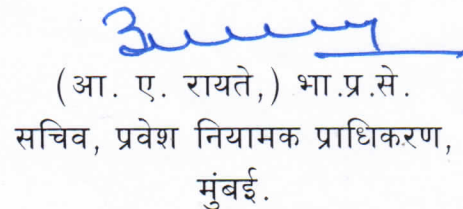 (आ. ए. रायते,) भा.प्र.से.
सचिव, प्रवेश नियामक प्राधिकरण,
मुंबई.